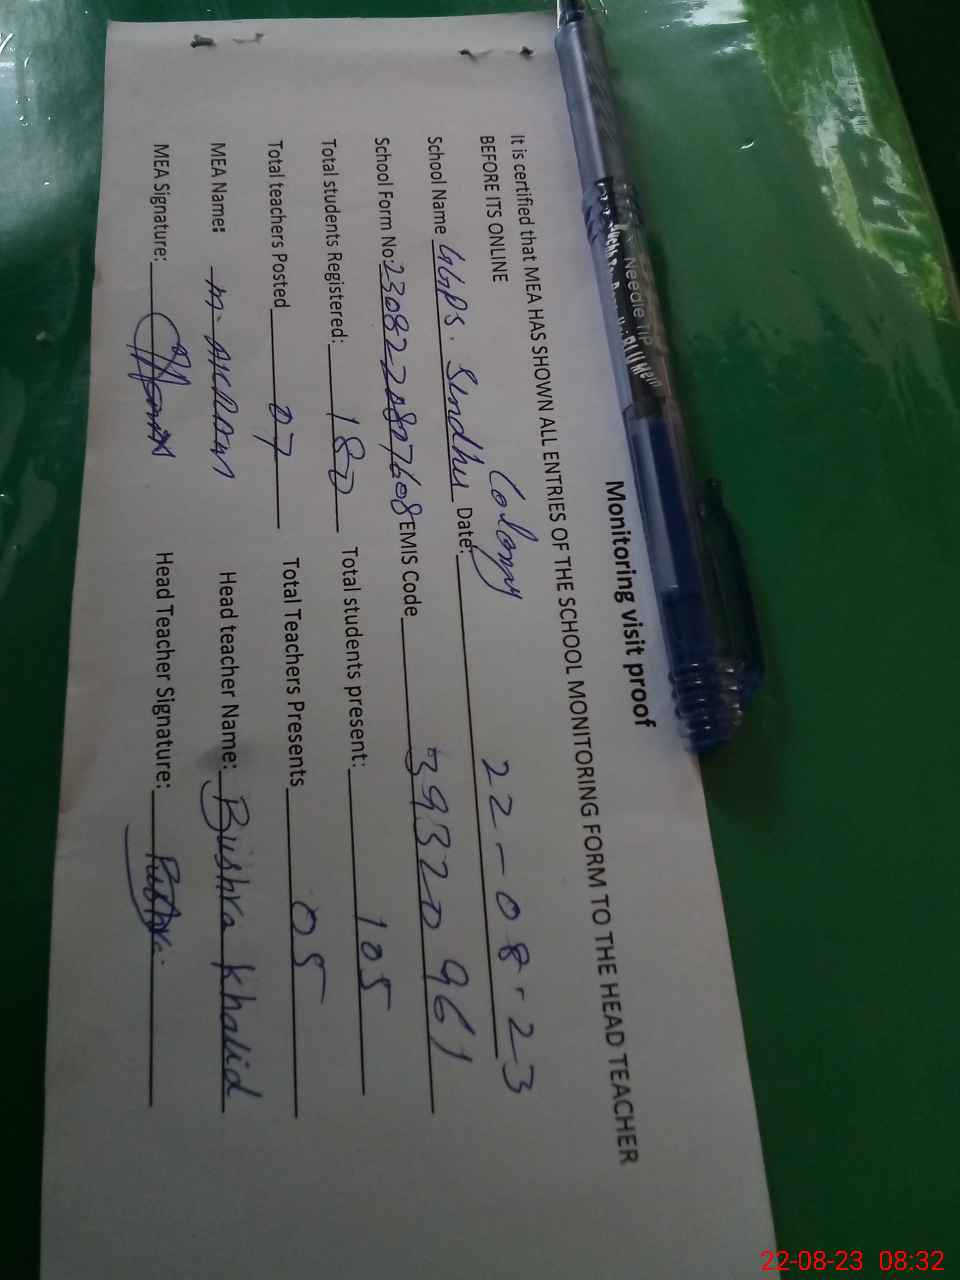 Monitoring visit proof
It is certified that MEA HAS SHOWN ALL ENTRIES OF THE SCHOOL MONITORING FORM TO THE HEAD TEACHER
BEFORE ITS ONLINE
Colony
School Name GGPS. Sindhu Date: 22-08-23
School Form No: 2308220827608 EMIS Code 39320961
Total students Registered: 180 Total students present: 105
Total teachers Posted 07 Total Teachers Presents 05
MEA Name: M. Akram Head teacher Name: Bushra Khalid
MEA Signature: Head Teacher Signature: Bushra.
Needle TIP
22-08-23 08:32